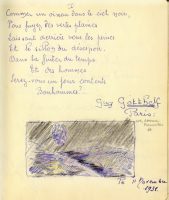 Comme un oiseau dans le ciel noir,
Vous fuyez des vertes plaines
Laissant derrière vous les peines
Et le sillon du désespoir.
Dans la fuite du temps
Et des hommes
Serez-vous un jour contents
Bonhommes?
Guy Gotthelf
Paris.
Novembre
1951